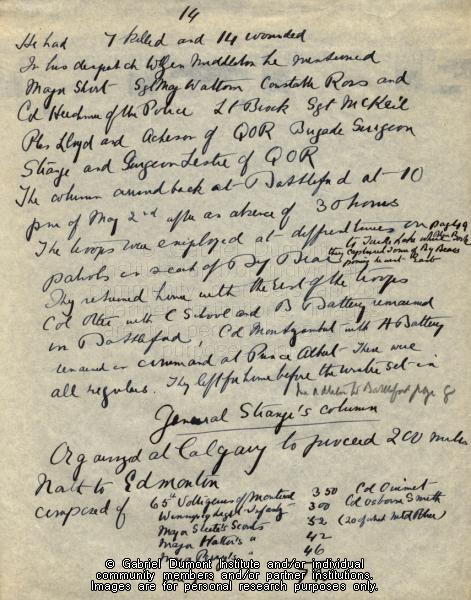 14
He had 7 killed and 14 wounded
In his despatch to Gen Middleton he mentioned
Major Short Sgt Maj Wattom Constable Ross and
Col Herchmer of the Police Lt Brock Sgt McKell
Ptes Lloyd and Acheson of QOR Brigade Surgeon
Strange and Surgeon Leslie of QOR
The column arrived back at Battleford at 10
pm of May 2nd after an absence of 30 hours
The troops were employed at different times on
patrols in search of Big Bear
to Turtle Lake where
they captured some of Big Bears
going to east
They returned home with the rest of the troops
Col Otter with C School and B Battery remained
in Battleford, Col Montizambert with A Battery
remained in command at Prince Albert These were
all regulars. They left for home before the winter set in
page 8
General Strange's Column
Organized at Calgary to proceed 200 miles
North to Edmonton
composed of 65th Voltigeurs of Montreal 350 Col Ouimet
Winnipeg Light Infantry 300 Col Osborn Smith
Major Steele's Scouts 52 (20 of which Mtd Police)
Major Hatton's " 42
Major Perry's " 46
© Gabriel Dumont Institute and/or individual
community members and/or partner institutions.
Images are for personal research purposes only.